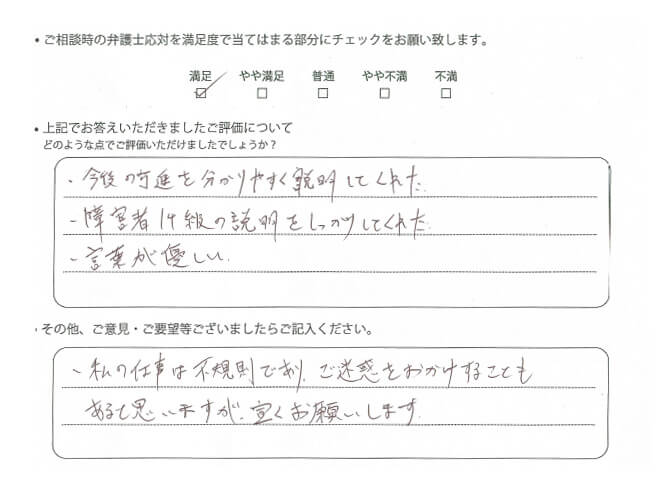 • ご相談時の弁護士応対を満足度で当てはまる部分にチェックをお願い致します。
満足 やや満足 普通 やや不満 不満
☑ □ □ □ □
• 上記でお答えいただきましたご評価について
どのような点でご評価いただけましたでしょうか？
・今後の を分かりやすく説明してくれた.
・障害者14級の説明をしっかりしてくれた.
・言葉が優しい.
・その他、ご意見・ご要望等ございましたらご記入ください。
・私の仕事は不規則であり、ご迷惑をおかけすることも
あると思いますが、宜くお願いします.